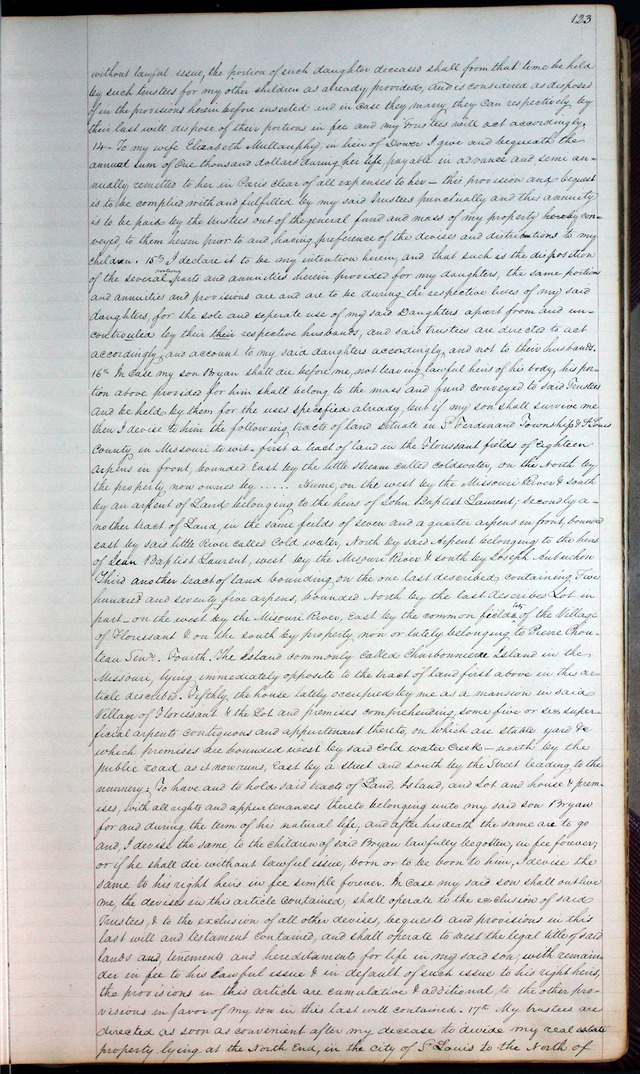 123
without lawful issue, the portion of such daughter deceased shall from that time be held
by such trustees for my other children as already provided, and is considered as disposed
of in the provisions herein before inserted and in case they marry they can respectively, by
their last will dispose of their portions in fee and my Trustees will act accordingly.
14- To my wife Elizabeth Mullanphy, in lieu of Dower I give and bequeath the
annual sum of One thousand dollars during her life, payable in advance and seme an-
nually remitted to her in Paris clear of all expenses to her - this provision and bequest
is to be complied with and fulfilled by my said trustees punctually and this annuity
is to be paid by the trustees out of the general fund and mass of my property hereby con-
veyed to them herein prior to and having preference of the devises and distributions to my
children. 15th I declare it to be my intention herein, and that such is the disposition
of the several portions parts and annuities herein provided for my daughters, the same portions
and annuities and provisions are and are to be during the respective lives of my said
daughters, for the sole and seperate use of my said Daughters apart from and un-
controuled by their their respective husbands, and said trustees are directed to act
accordingly, and account to my said daughters accordingly, and not to their husbands.
16th In case my son Bryan shall die before me, not leaving lawful heirs of his body, his por-
tion above provided for him shall belong to the mass and fund conveyed to said Trustees
and be held by them for the uses specified already, but if my son shall survive me
then I devise to him the following tracts of land situate in St Ferdinand Township & St Louis
County, in Missouri to wit, first a tract of land in the Florissant fields of Eighteen
arpens in front, bounded East by the little stream called coldwater, on the North by
the property now owned by ..... Hume, on the west by the Missouri River & south
by an arpent of Land belonging to the heirs of John Baptist Laurent; Secondly a-
nother tract of Land, in the same fields of seven and a quarter arpens in front, bounded
east by said little River called Cold water, North by said Arpent belonging to the heirs
of Jean Baptist Laurent, west by the Misouri River & south by Joseph Aubuchon
Third another tract of land bounding on the one last described containing Five
hundred and seventy five arpens, bounded North by the last described Lot in
part - on the west by the Misouri River, East by the common field lots of the Village
of Florissant & on the south by property, now or lately belonging to Pierre Chou-
teau Senr. Fourth. The Island commonly called Charbonniere Island in the
Missouri, lying immediately opposite to the tract of land first above in this ar-
ticle described. Fifthly, the house lately occupied by me as a mansion in said
Village of Florissant & the Lot and premises comprehending some five or six super-
ficial arpents contiguous and appurtenant thereto, on which are stable yard &c
which premises are bounded west by said Cold water Creek - north by the
public road as it now runs, East by a street and south by the Street leading to the
nunnery: To have and to hold said tracts of Land, Island, and Lot and house & prem-
ises, with all rights and appurtenances thereto belonging unto my said son Bryan
for and during the term of his natural life, and after his death the same are to go
and, I devise the same to the children of said Bryan lawfully begotten, in fee forever;
or if he shall die without lawful issue, born or to be born to him, I devise the
same to his right heirs in fee simple forever. In case my said son shall outlive
me, the devises in this article contained, shall operate to the exclusion of said
Trustees, & to the exclusion of all other devises, bequests and provisions in this
last will and testament contained, and shall operate to vest the legal title of said
lands and, tenements and hereditaments for life in my said son, with remain-
der in fee to his lawful issue & in default of such issue to his right heirs,
the provisions in this article are cumulative & additional to the other pro-
visions in favor of my son in this last will contained. 17th My trustees are
directed as soon as convenient after my decease to divide my real estate
property lying at the North End, in the city of St Louis to the North of